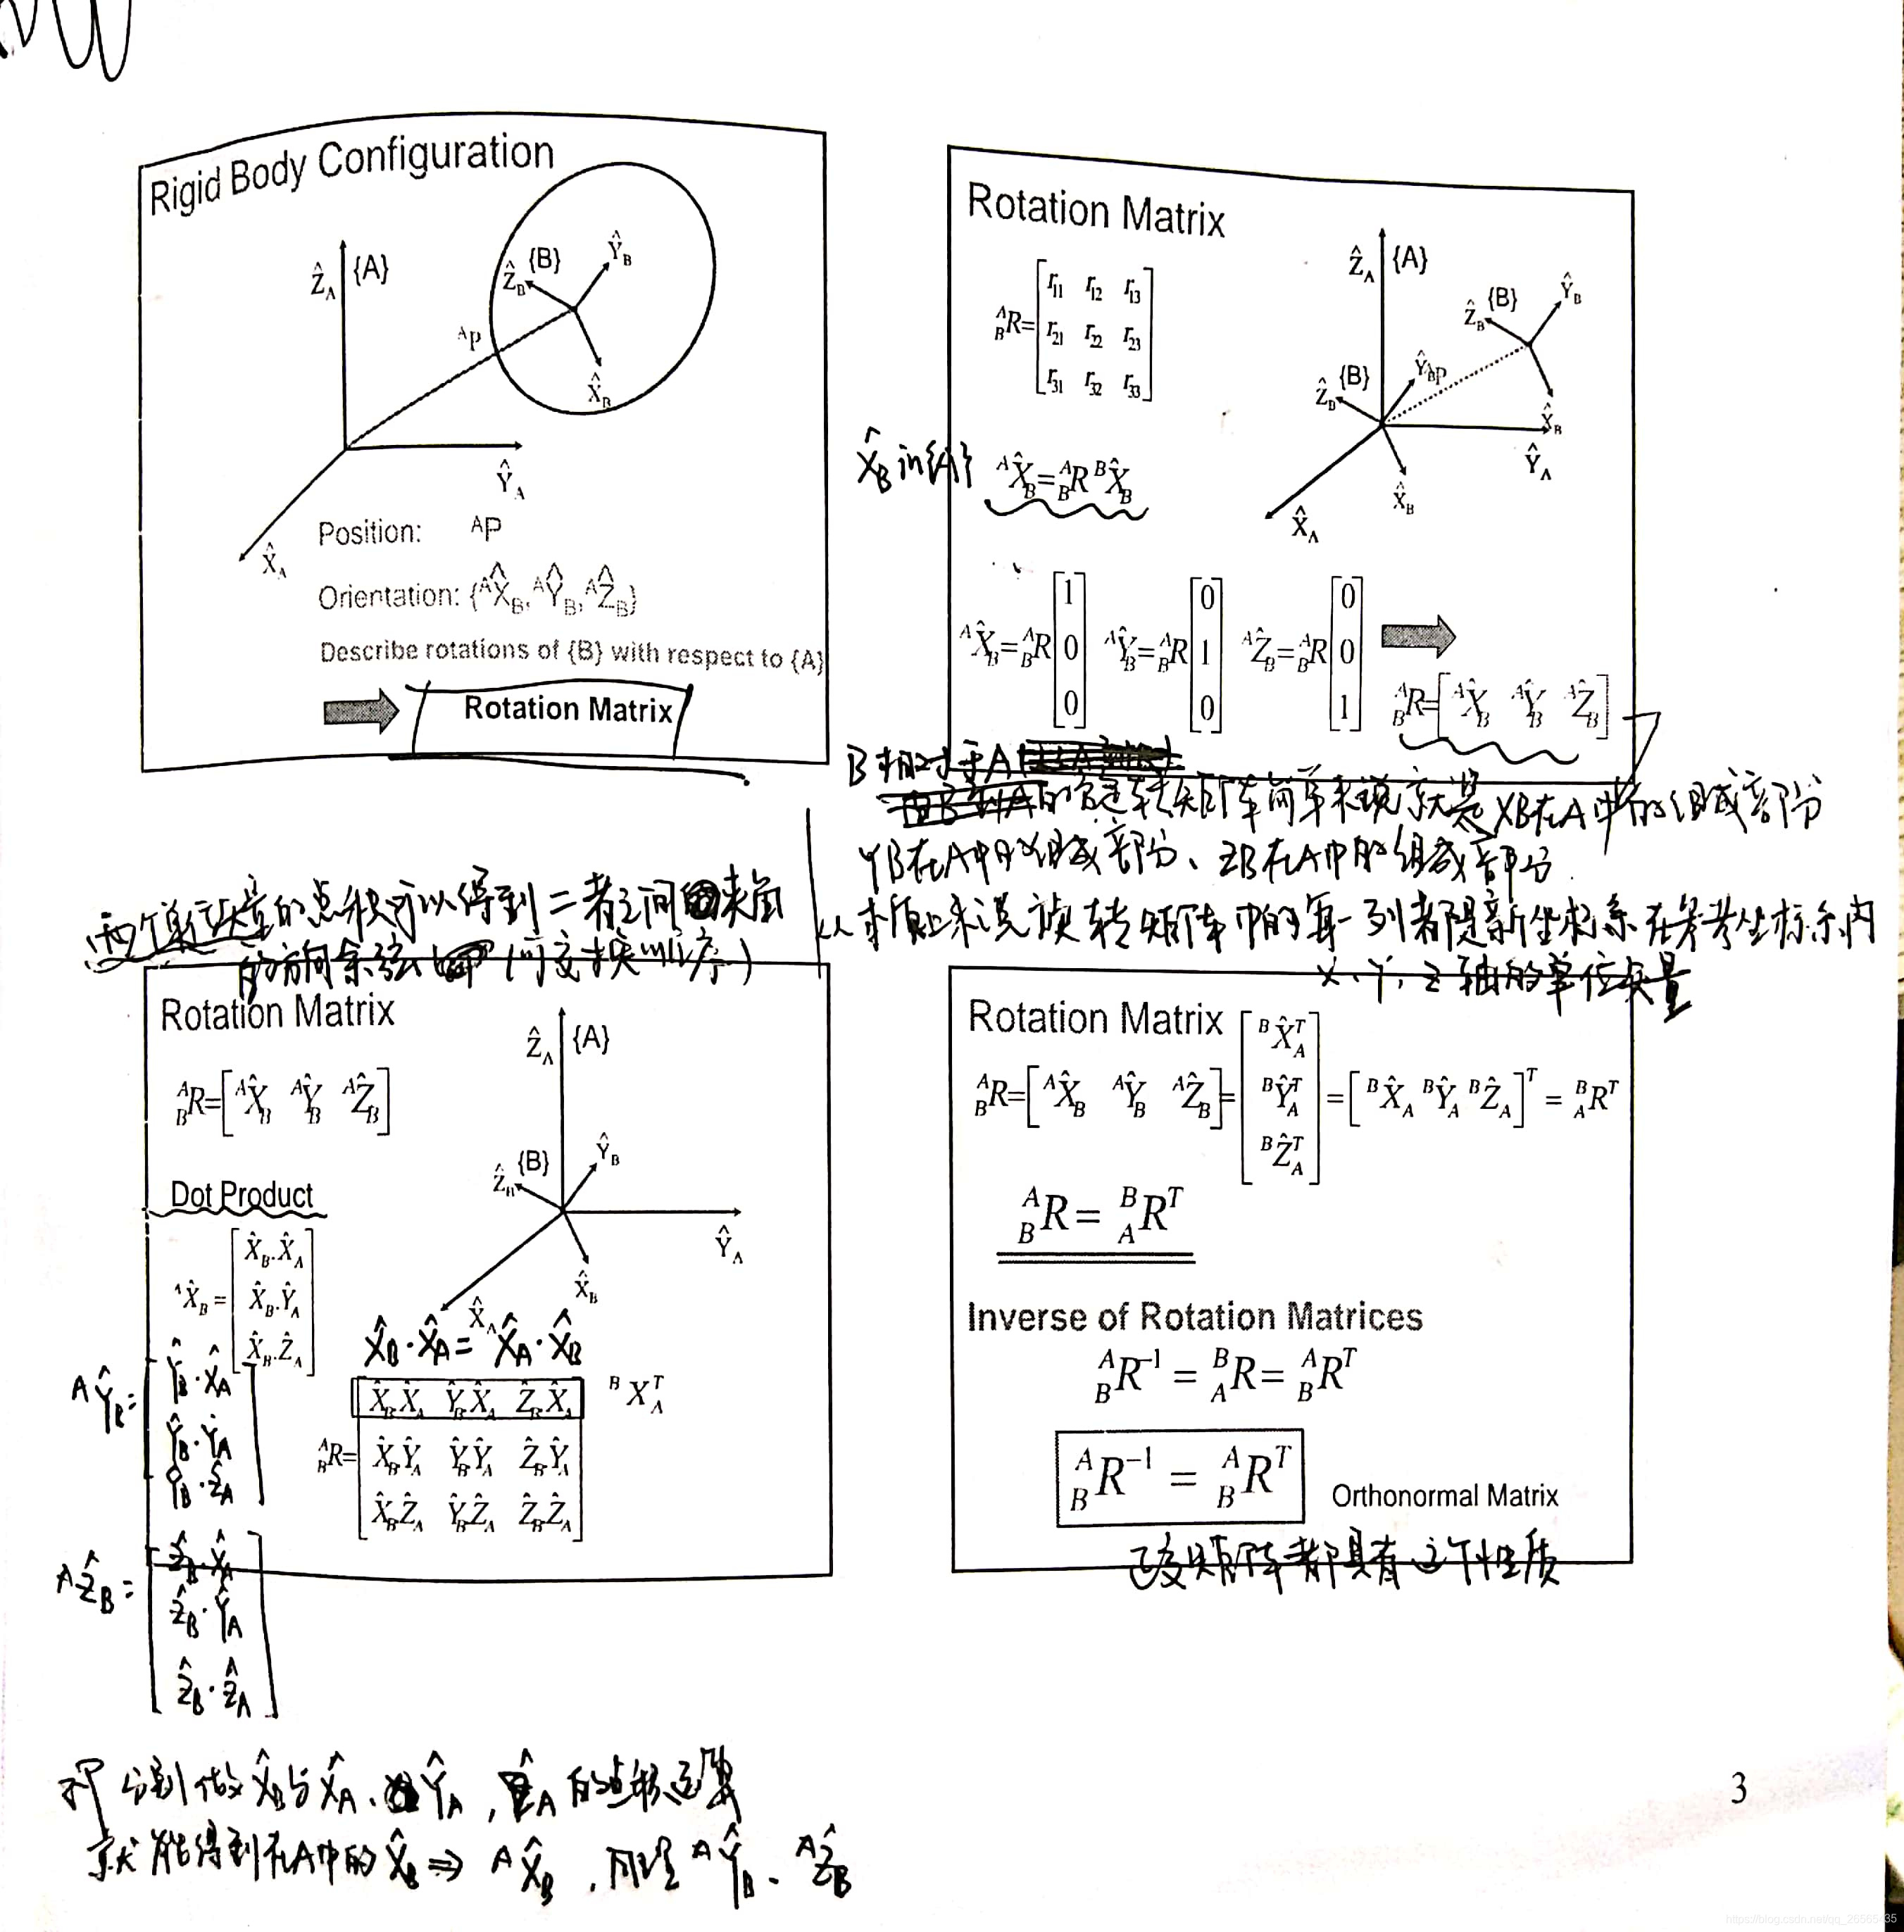 Rigid Body Configuration
Ẑ_A {A}
Ẑ_B {B} Ŷ_B
^A P
X̂_B
Ŷ_A
X̂_A
Position: ^A P
Orientation: {^A X̂_B, ^A Ŷ_B, ^A Ẑ_B}
Describe rotations of {B} with respect to {A}
Rotation Matrix
Rotation Matrix
^A_B R = [r11 r12 r13
r21 r22 r23
r31 r32 r33]
Ẑ_A {A}
Ẑ_B {B} Ŷ_B
Ẑ_B {B} Ŷ_B ^A P
X̂_B
Ŷ_A
X̂_B
X̂_A
X̂_B in {A} ^A X̂_B = ^A_B R ^B X̂_B
^A X̂_B = ^A_B R [1 0 0] ^A Ŷ_B = ^A_B R [0 1 0] ^A Ẑ_B = ^A_B R [0 0 1]
^A_B R = [^A X̂_B ^A Ŷ_B ^A Ẑ_B]
B相对于A
的旋转矩阵简单来说就是XB在A中的组成部份
YB在A中的组成部份、ZB在A中的组成部分.
从本质上来说旋转矩阵中的每一列都是新坐标系在参考坐标系内
X、Y、Z轴的单位矢量
两个单位矢量的点积可以得到二者之间的夹角
的方向余弦 (可交换顺序)
Rotation Matrix
^A_B R = [^A X̂_B ^A Ŷ_B ^A Ẑ_B]
Ẑ_A {A}
Ẑ_B {B} Ŷ_B
Ŷ_A
X̂_B
X̂_A
Dot Product
^A X̂_B = [X̂_B.X̂_A
X̂_B.Ŷ_A
X̂_B.Ẑ_A]
X̂_B·X̂_A = X̂_A·X̂_B
^A Ŷ_B = [Ŷ_B·X̂_A
Ŷ_B·Ŷ_A
Ŷ_B·Ẑ_A]
^A_B R = [X̂_B.X̂_A Ŷ_B.X̂_A Ẑ_B.X̂_A ^B X_A^T
X̂_B.Ŷ_A Ŷ_B.Ŷ_A Ẑ_B.Ŷ_A
X̂_B.Ẑ_A Ŷ_B.Ẑ_A Ẑ_B.Ẑ_A]
^A Ẑ_B = [Ẑ_B·X̂_A
Ẑ_B·Ŷ_A
Ẑ_B·Ẑ_A]
Rotation Matrix
^A_B R = [^A X̂_B ^A Ŷ_B ^A Ẑ_B] = [^B X̂_A^T ^B Ŷ_A^T ^B Ẑ_A^T] = [^B X̂_A ^B Ŷ_A ^B Ẑ_A]^T = ^B_A R^T
^A_B R = ^B_A R^T
Inverse of Rotation Matrices
^A_B R^-1 = ^B_A R = ^A_B R^T
^A_B R^-1 = ^A_B R^T Orthonormal Matrix
正交矩阵都具有这个性质
分别做X̂_B与X̂_A、Ŷ_A, Ẑ_A的点积运算
就能得到在A中的X̂_B ⇒ ^A X̂_B, 同理 ^A Ŷ_B、^A Ẑ_B
3